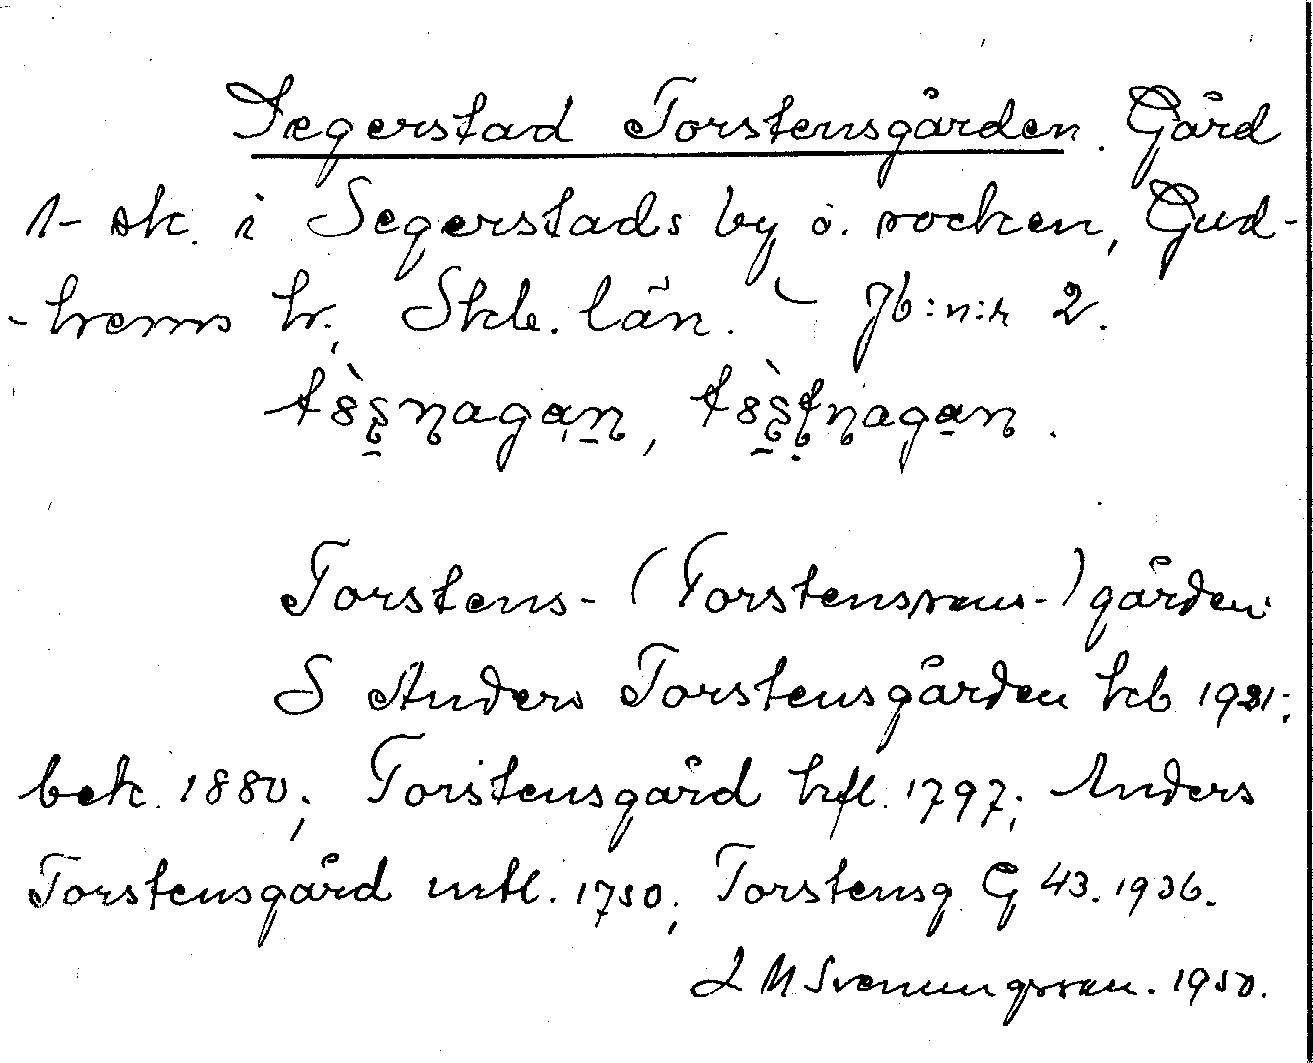 Segerstad Torstensgården. Gård
1- sk. i Segerstads by o. socken, Gud-
-hems hr. Skb. län. Jb:n:r 2.
Torstens- (Torstenssons-) gården:
S Anders Torstensgården kb 1921;
bek. 1880; Torstensgård hfl. 1797; Anders
Torstensgård mtl. 1750; Torstensg G 43. 1936.
Svenungsson. 1950.